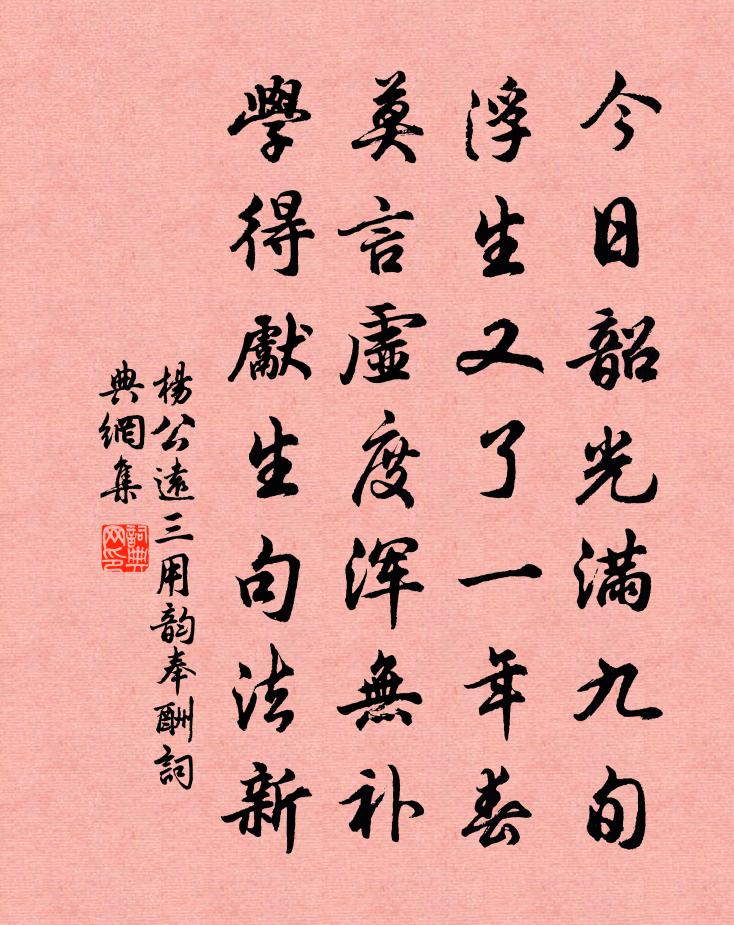 今日韶光滿九旬
浮生又了一年春
莫言虛度浑無补
學得獻生句法新
楊公遠三用韵奉酬詞
典網集
詞典
网印